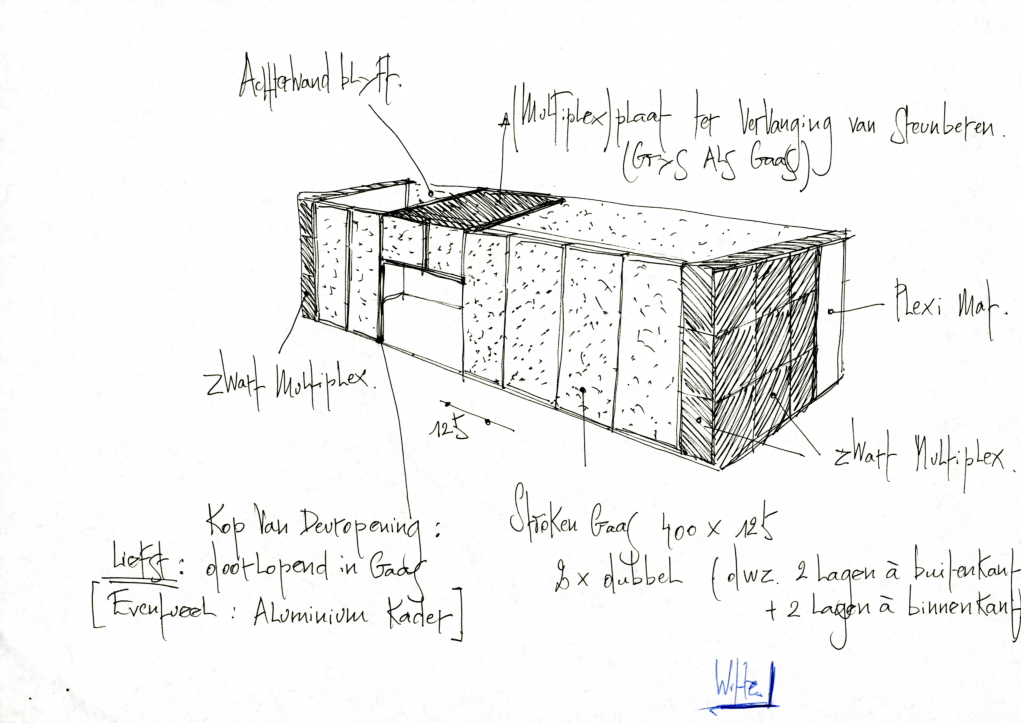 Achterwand blijft.
(Multiplex) plaat ter vervanging van steunberen.
(Grijs als Gaas)
Plexi Mat.
zwart Multiplex.
125
zwart Multiplex.
Kop van Deuropening :
Liefst : doorlopend in Gaas
[Eventueel : Aluminium Kader]
Stroken Gaas 400 x 125
2 x dubbel (dwz. 2 Lagen à buitenkant
+ 2 Lagen à binnenkant